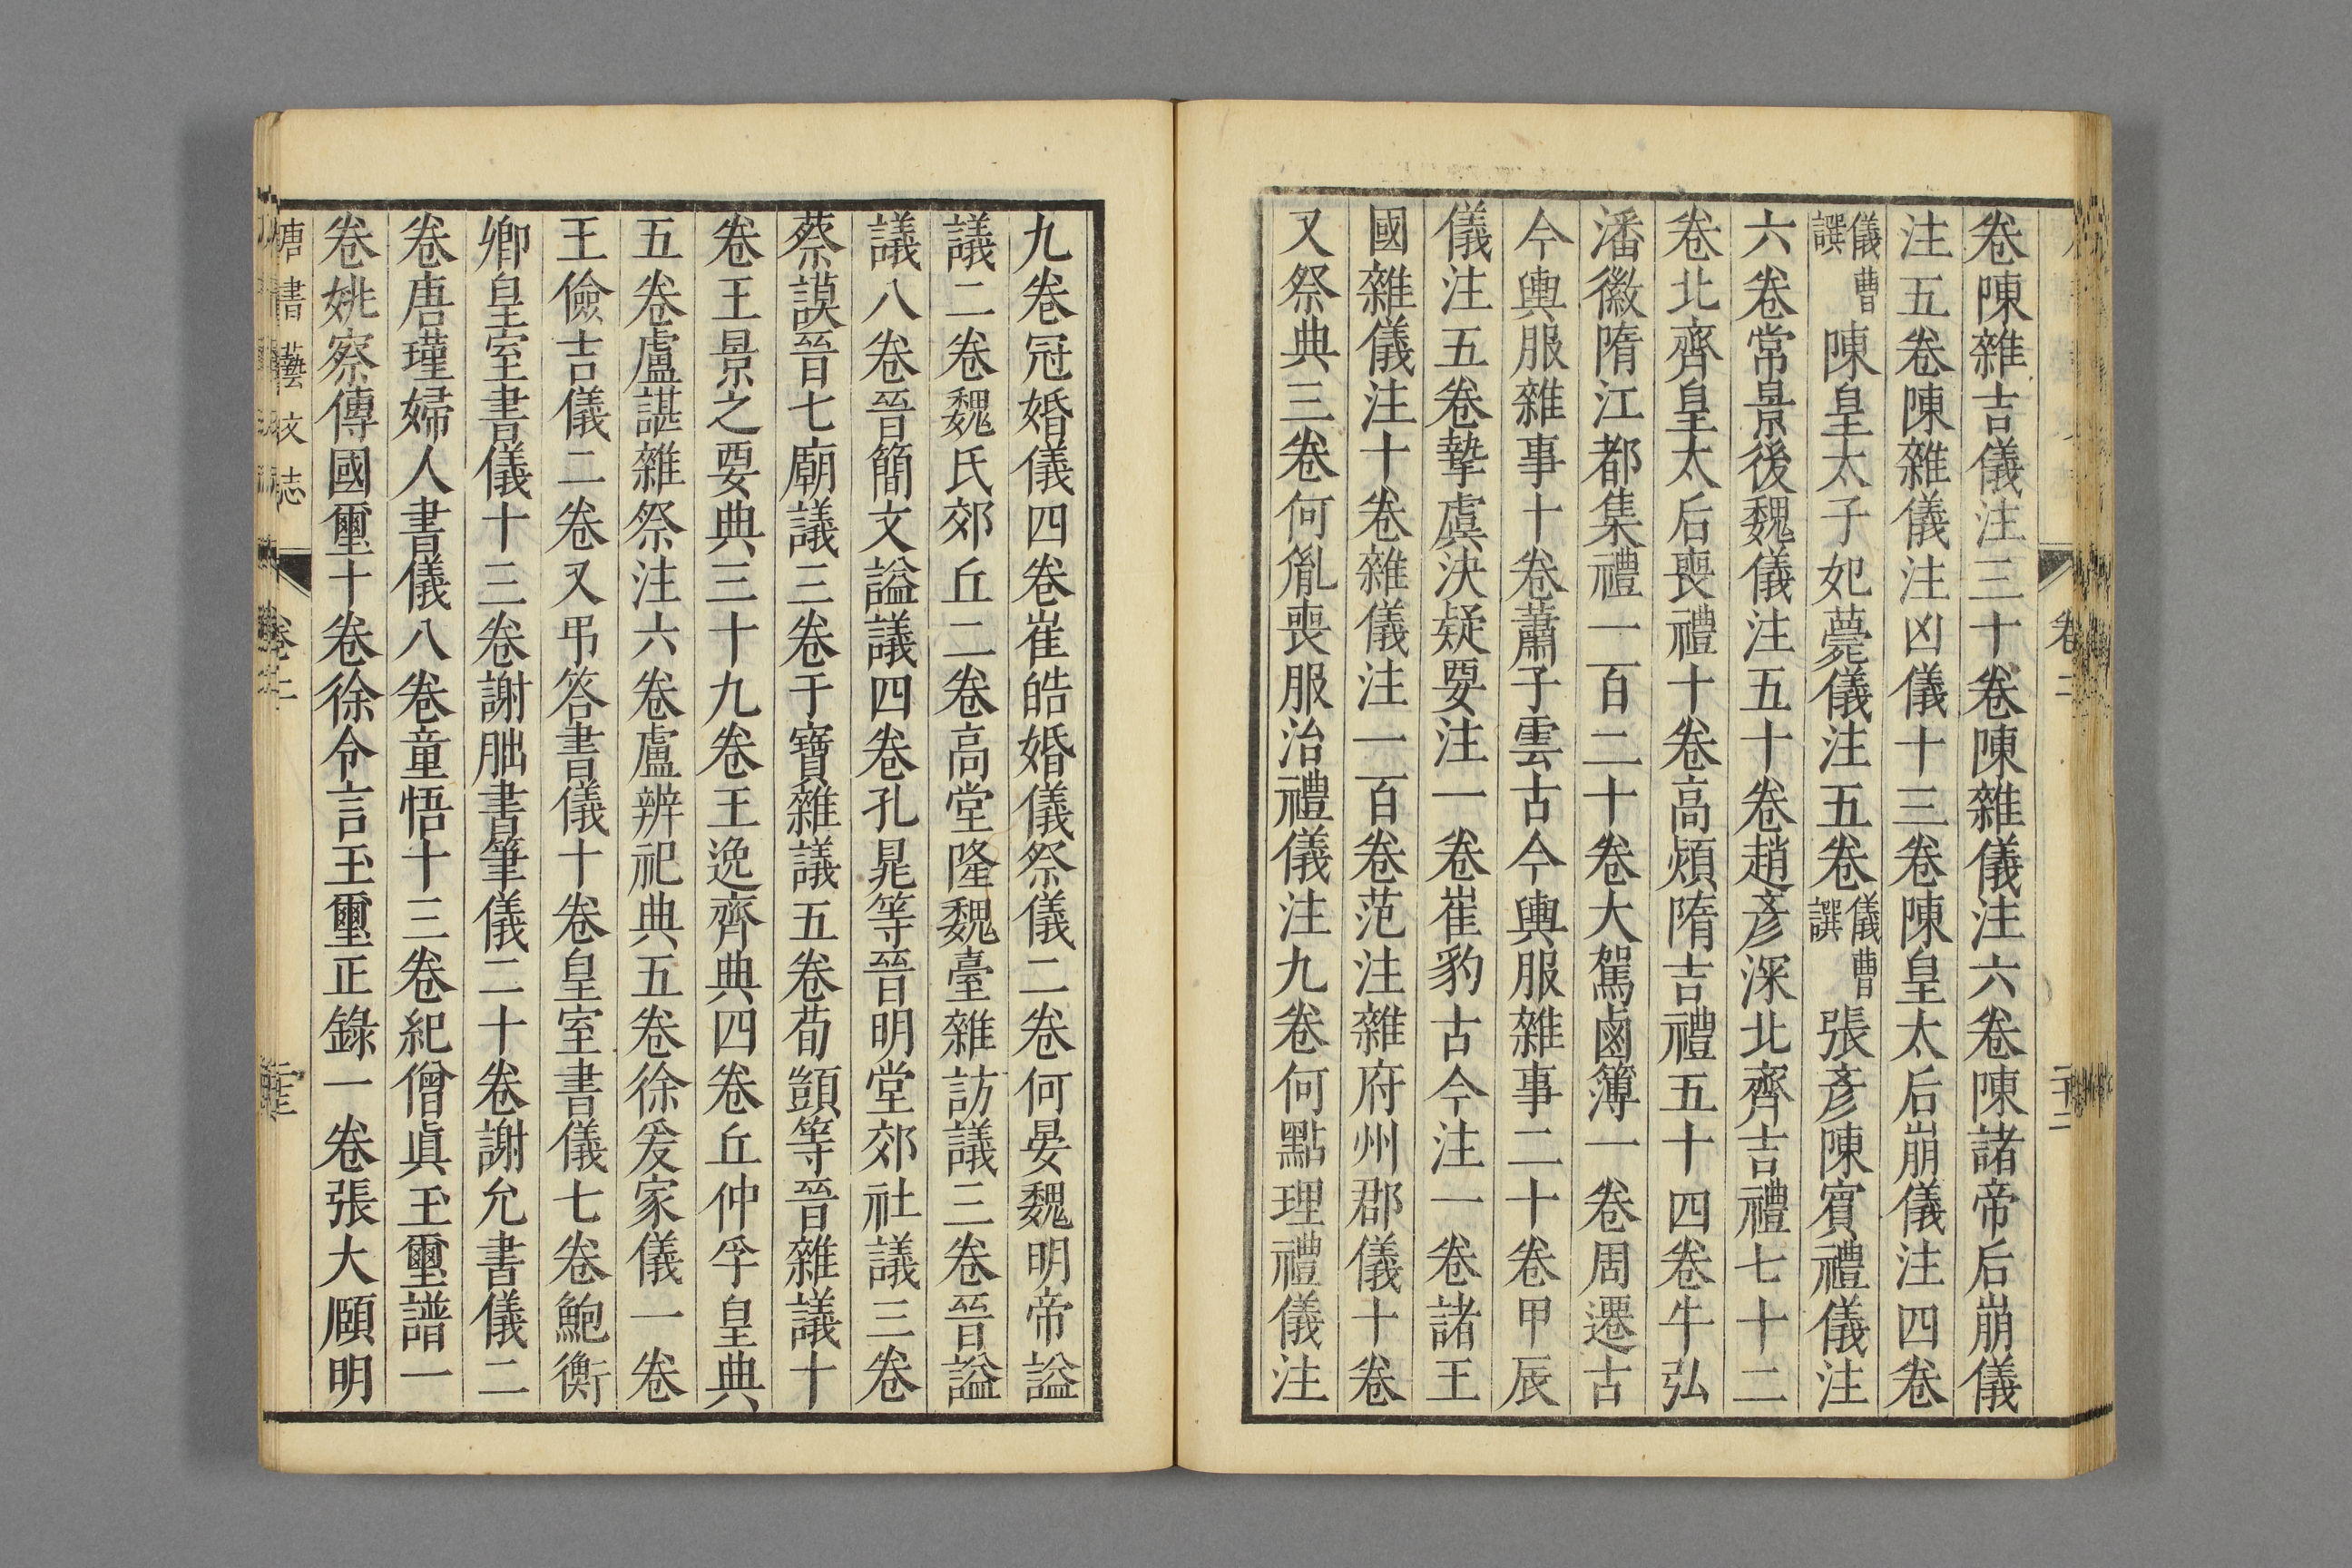 卷陳雜吉儀注三十卷陳雜儀注六卷陳諸帝后崩儀
注五卷陳雜儀注凶儀十三卷陳皇太后崩儀注四卷
儀曹譔陳皇太子妃薨儀注五卷儀曹譔張彥陳賓禮儀注
六卷常景後魏儀注五十卷趙彥深北齊吉禮七十二
卷北齊皇太后喪禮十卷高熲隋吉禮五十四卷牛弘
潘徽隋江都集禮一百二十卷大駕鹵簿一卷周遷古
今輿服雜事十卷蕭子雲古今輿服雜事二十卷甲辰
儀注五卷摯虞決疑要注一卷崔豹古今注一卷諸王
國雜儀注十卷雜儀注一百卷范注雜府州郡儀十卷
又祭典三卷何胤喪服治禮儀注九卷何點理禮儀注
九卷冠婚儀四卷崔皓婚儀祭儀二卷何晏魏明帝謚
議二卷魏氏郊丘二卷高堂隆魏臺雜訪議三卷晉謚
議八卷晉簡文謚議四卷孔晁等晉明堂郊社議三卷
蔡謨晉七廟議三卷干寶雜議五卷荀顗等晉雜議十
卷王景之要典三十九卷王逸齊典四卷丘仲孚皇典
五卷盧諶雜祭注六卷盧辨祀典五卷徐爰家儀一卷
王儉吉儀二卷又弔答書儀十卷皇室書儀七卷鮑衡
卿皇室書儀十三卷謝朏書筆儀二十卷謝允書儀二
卷唐瑾婦人書儀八卷童悟十三卷紀僧眞玉璽譜一
卷姚察傳國璽十卷徐令言玉璽正錄一卷張大頤明
唐書藝文志
卷二